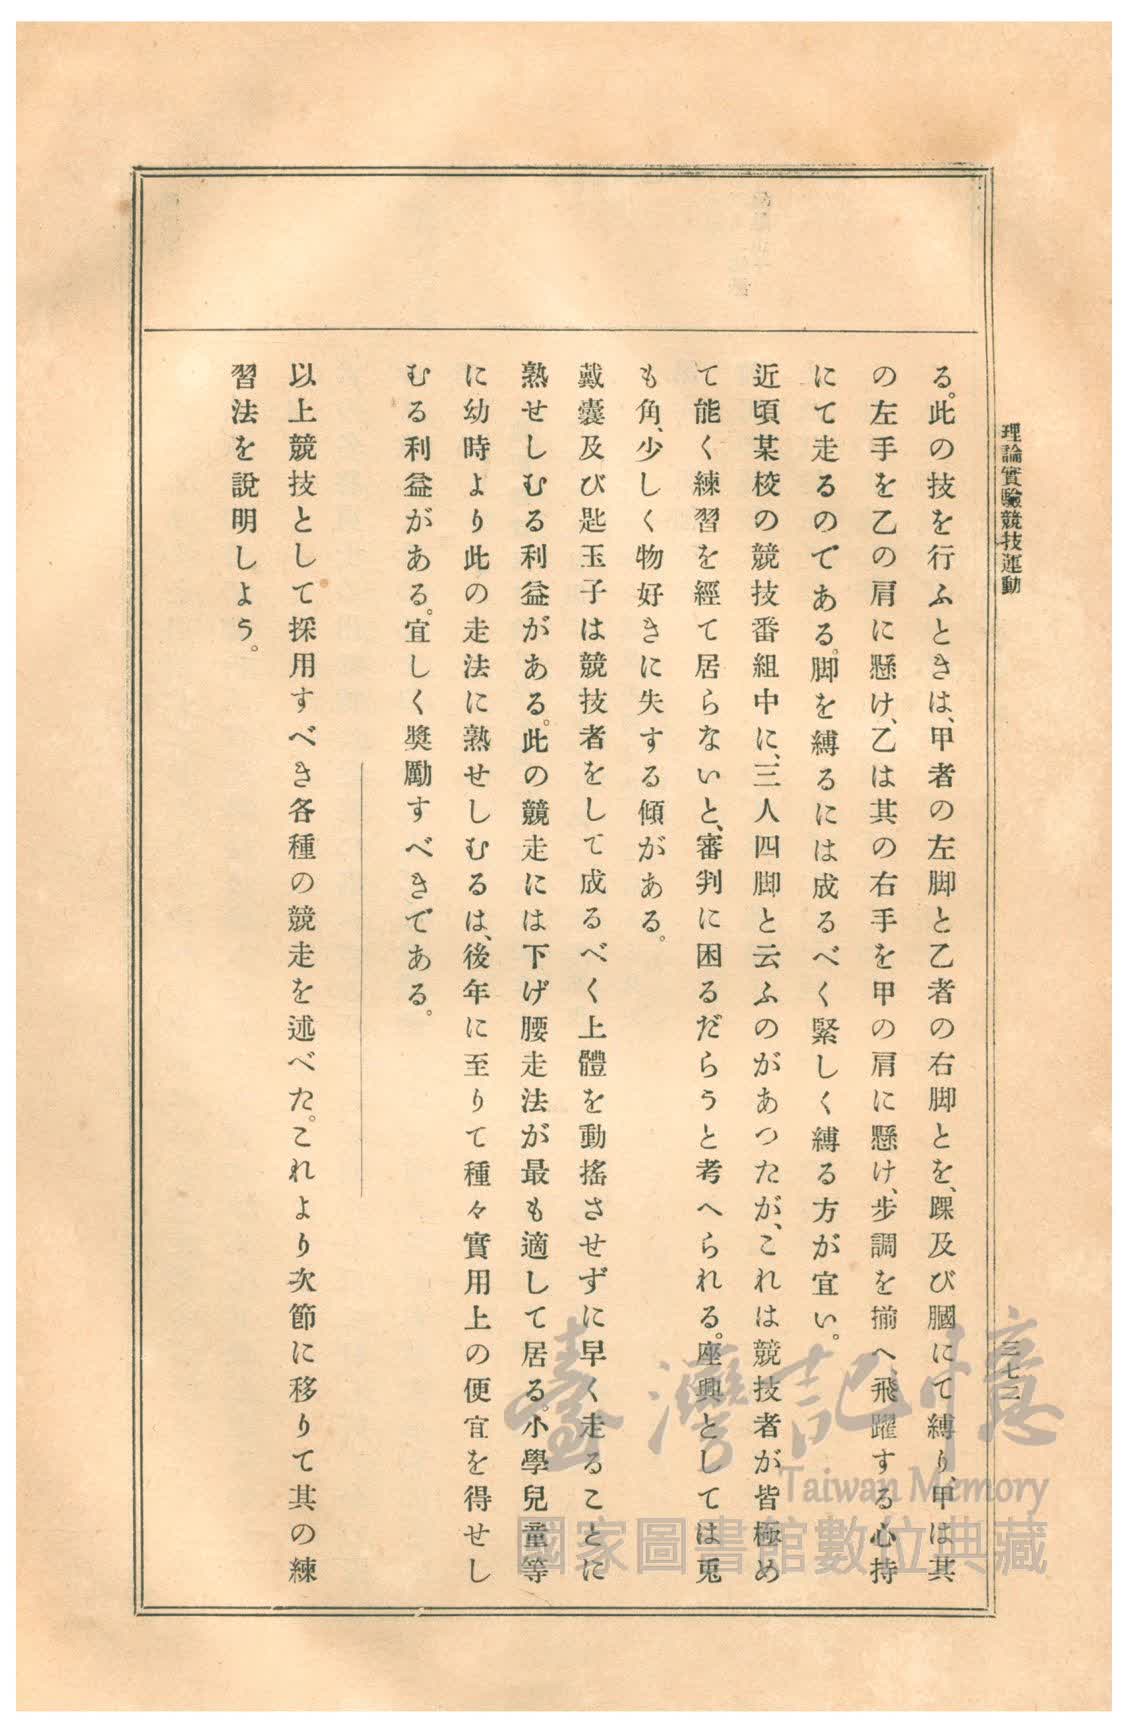 理論實驗競技運動
三七二
る。此の技を行ふときは、甲者の左脚と乙者の右脚とを、踝及び膕にて縛り、甲は其
の左手を乙の肩に懸け、乙は其の右手を甲の肩に懸け、步調を揃へ、飛躍する心持
にて走るのである。脚を縛るには成るべく緊しく縛る方が宜い。
近頃某校の競技番組中に、三人四脚と云ふのがあつたが、これは競技者が皆極め
て能く練習を經て居らないと、審判に困るだらうと考へられる。座興としては兎
も角、少しく物好きに失する傾がある。
戴囊及び匙玉子は競技者をして成るべく上體を動搖させずに早く走ることに
熟せしむる利益がある。此の競走には下げ腰走法が最も適して居る。小學兒童等
に幼時より此の走法に熟せしむるは、後年に至りて種々實用上の便宜を得せし
むる利益がある。宜しく奬勵すべきである。
以上競技として採用すべき各種の競走を述べた。これより次節に移りて其の練
習法を說明しよう。
臺灣記憶
Taiwan Memory
國家圖書館數位典藏